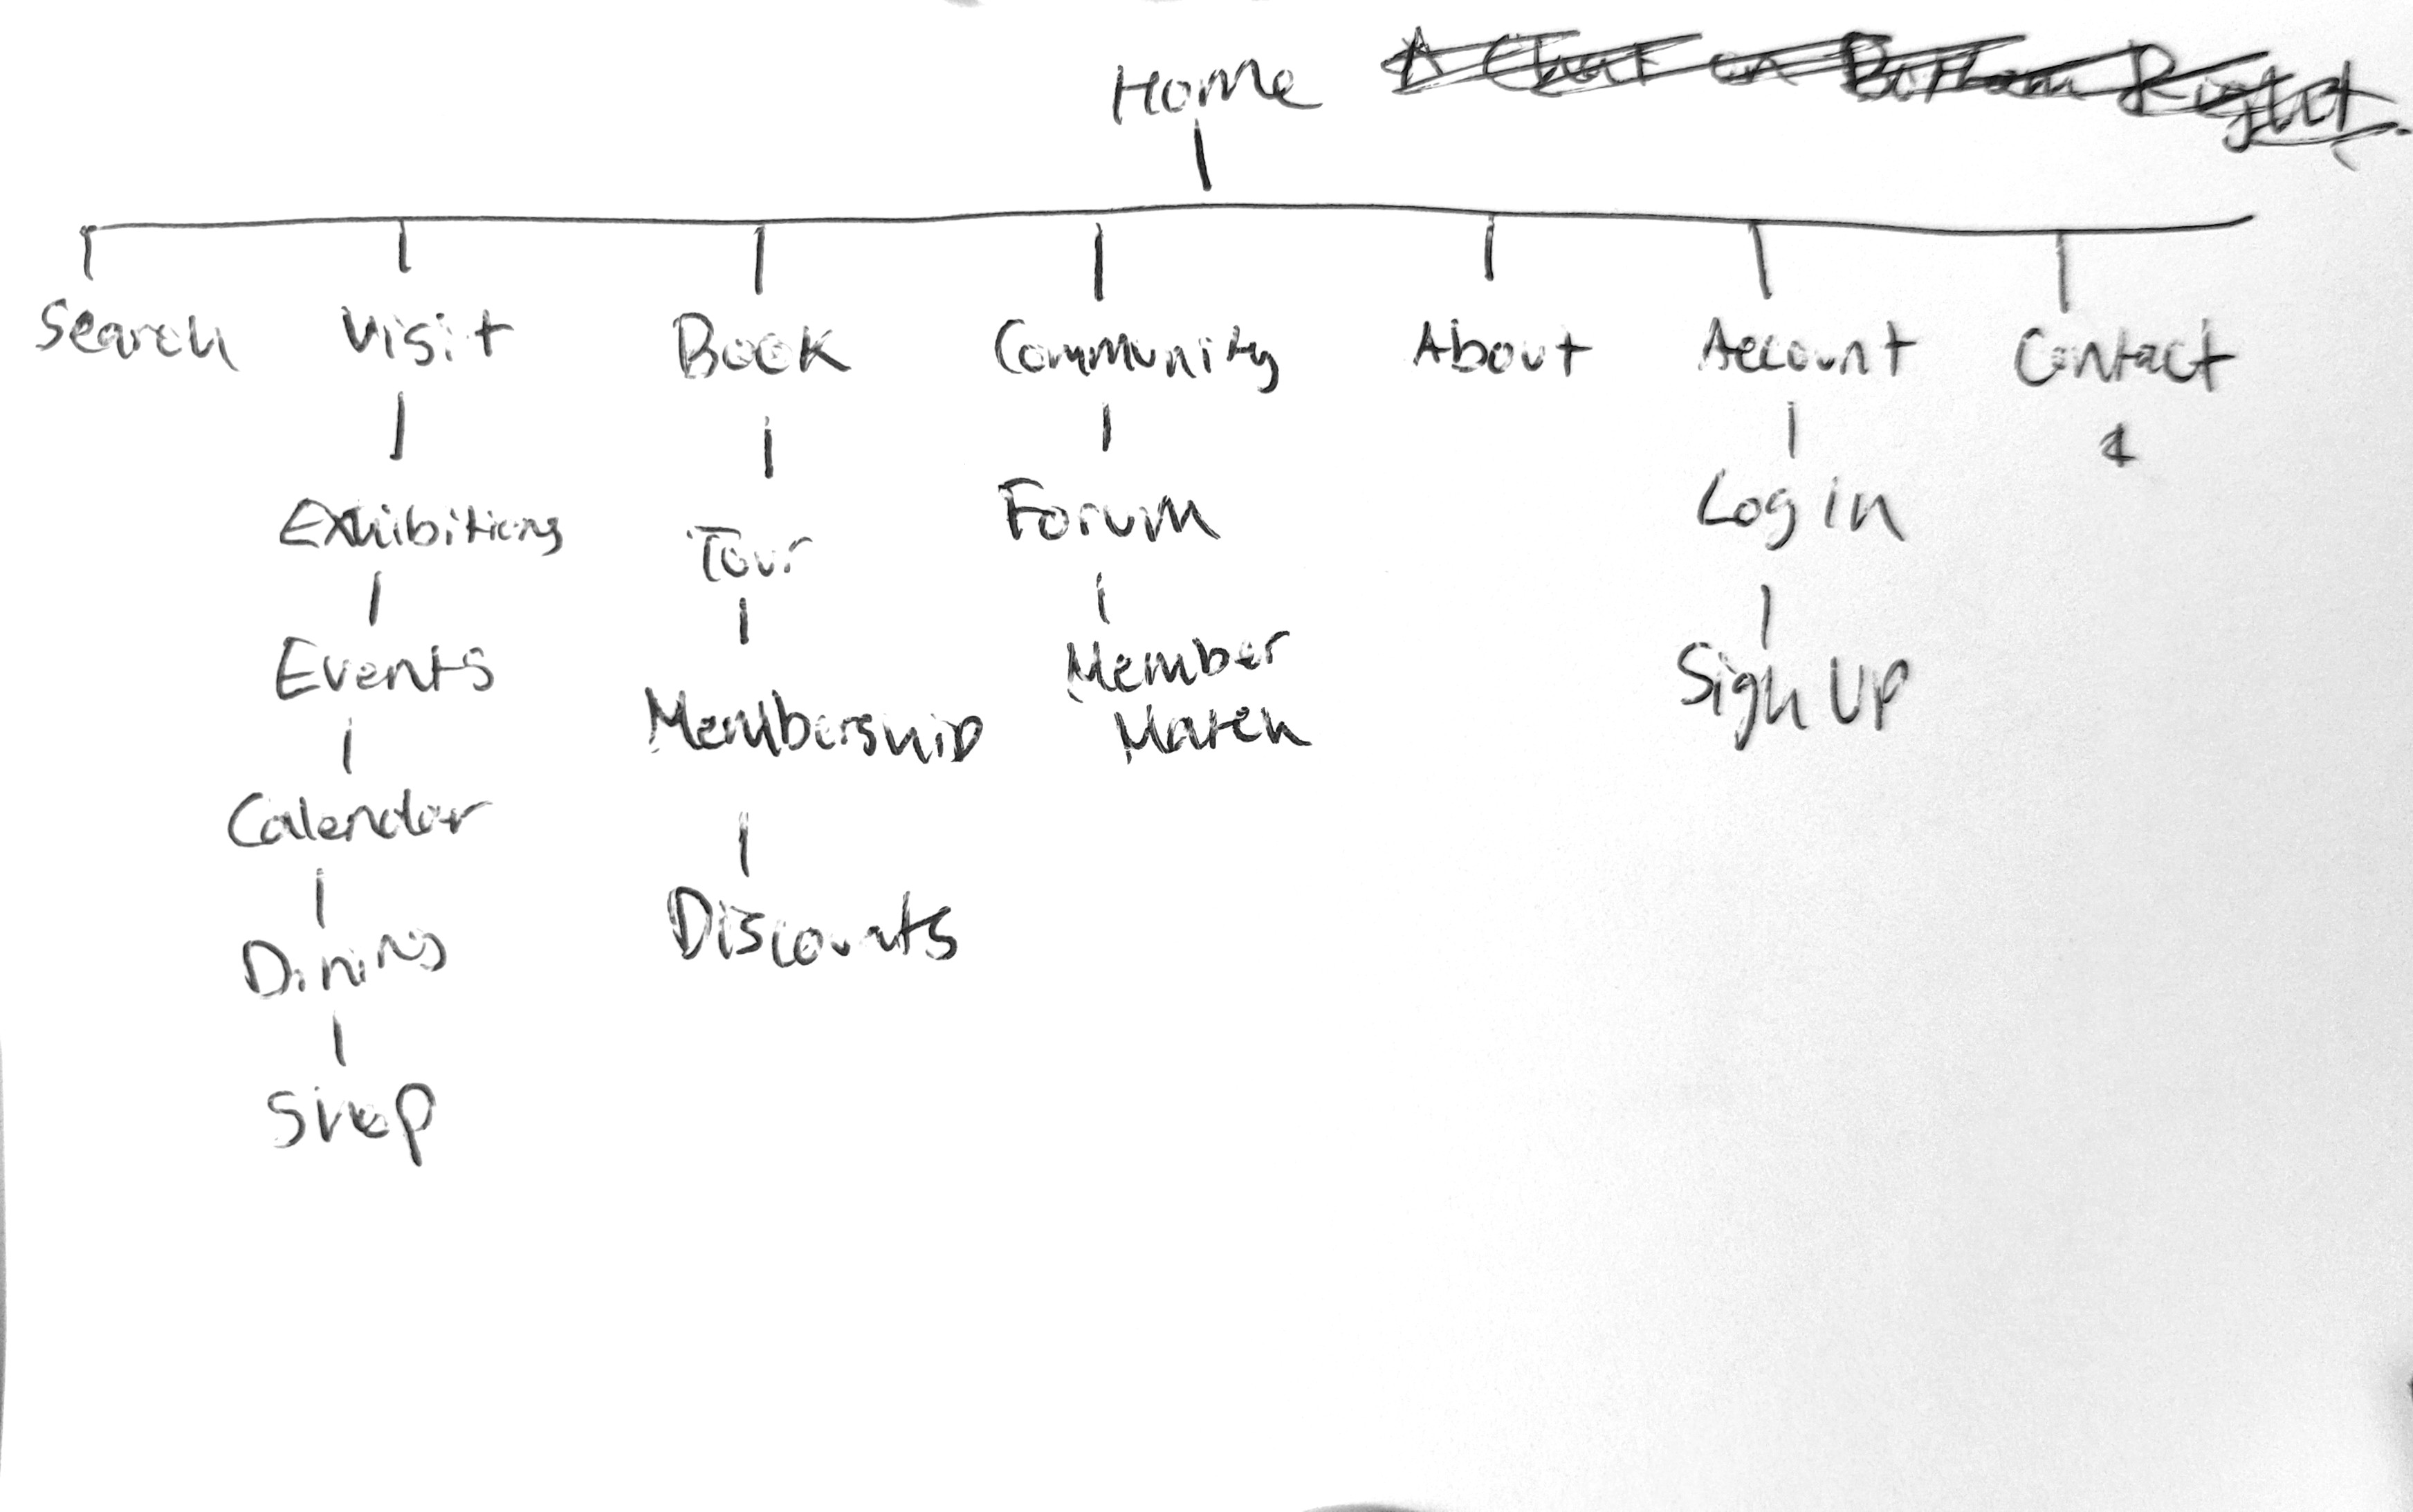 Home
Search Visit Book Community About Account Contact
Exhibitions Tour Forum Log in
Events Membership Member Match Sign Up
Calendar Discounts
Dining
Shop